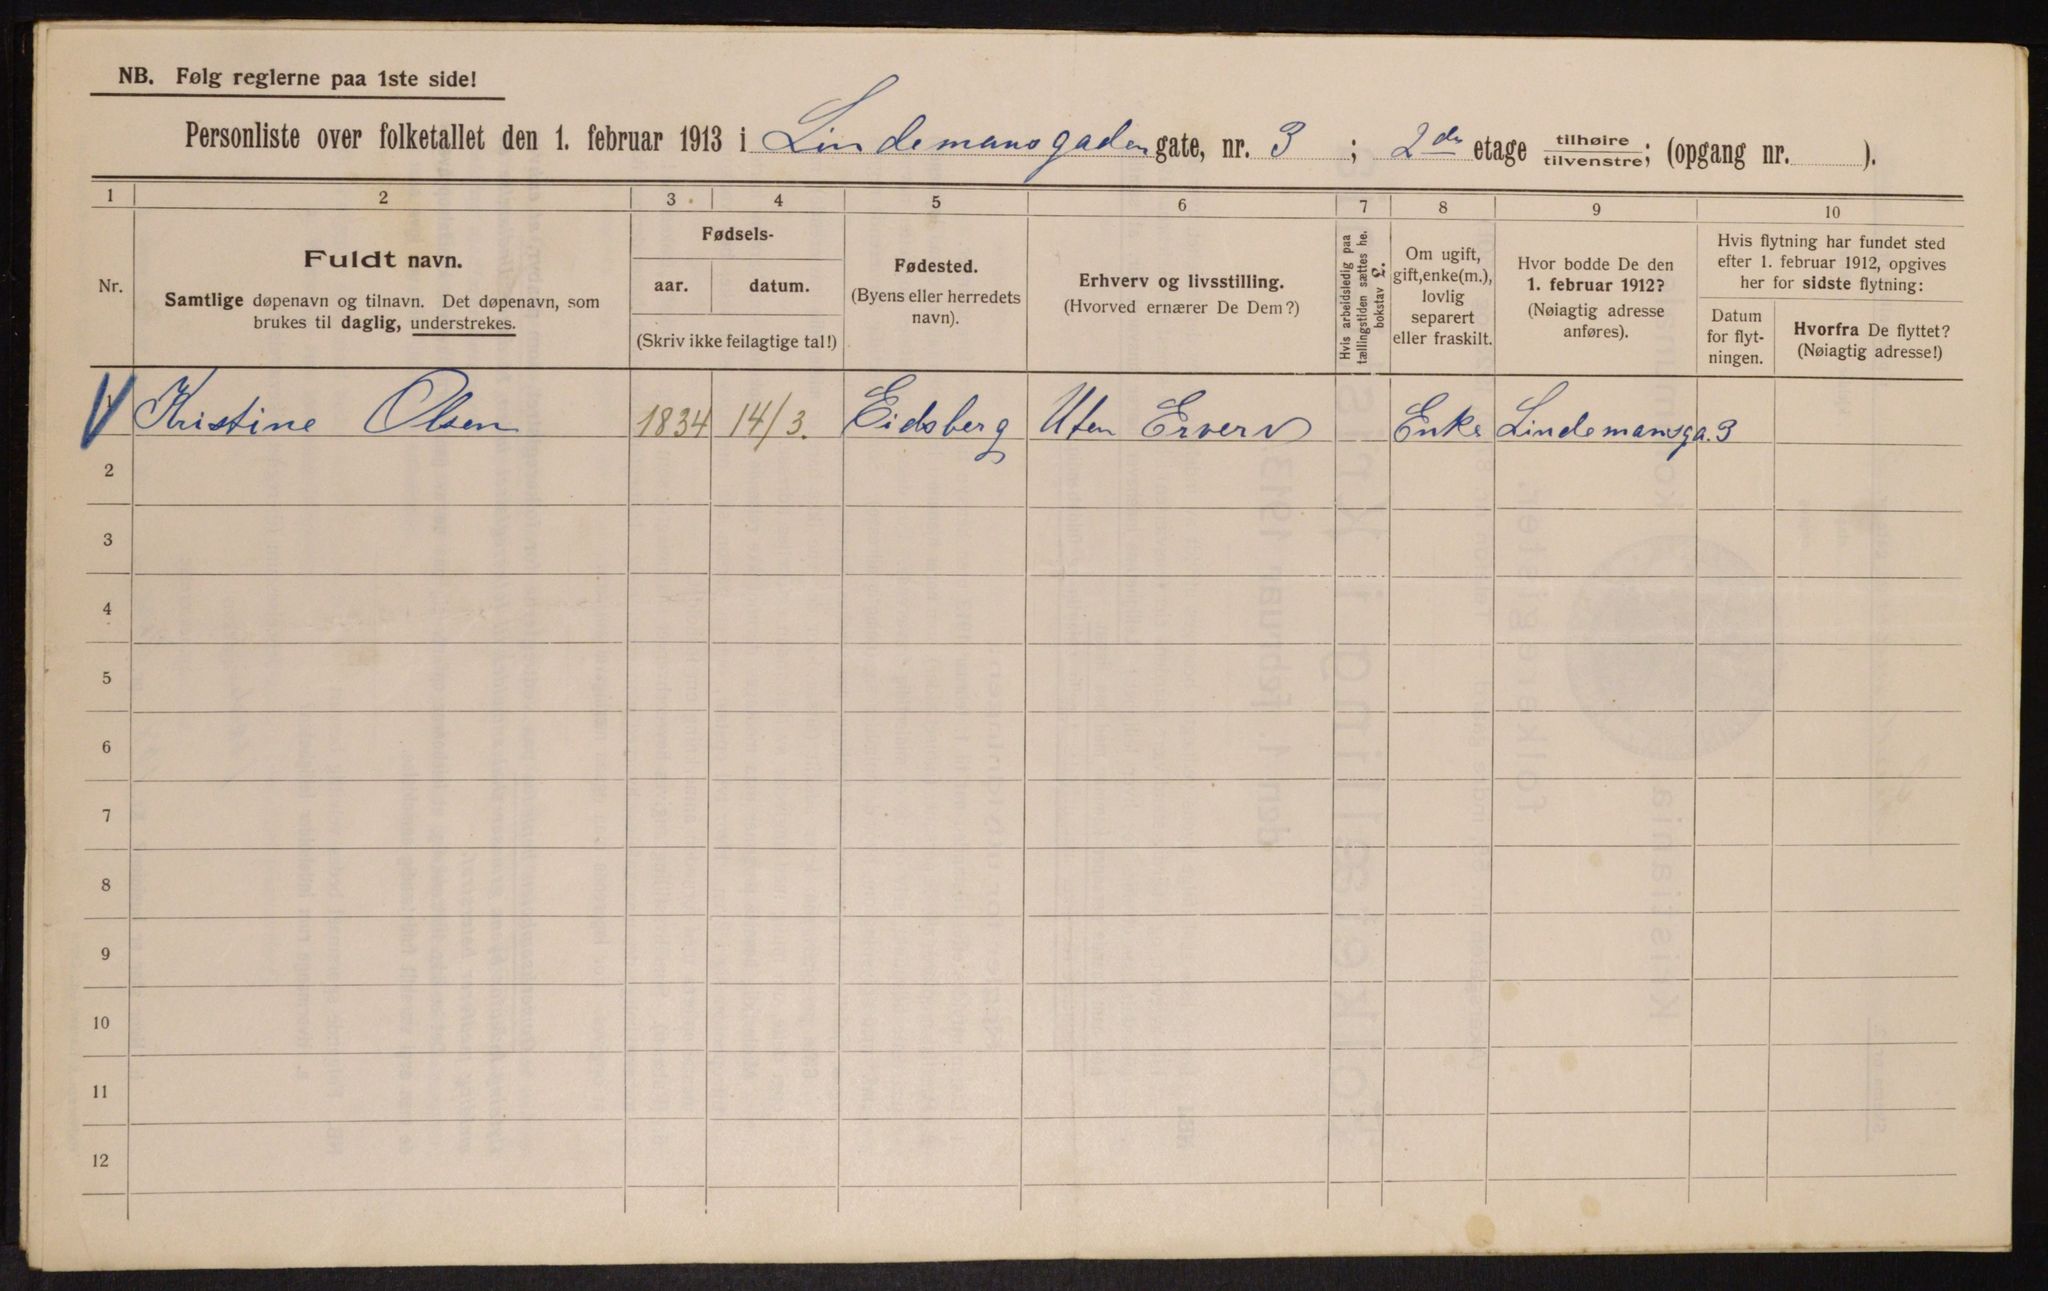 NB. Følg reglerne paa 1ste side!
Personliste over folketallet den 1. februar 1913 i Lindemansgaden gate, nr. 3 ; 2den etage tilhøire tilvenstre; (opgang nr. ).
1 2 3 4 5 6 7 8 9 10
Nr.
Fuldt navn.
Samtlige døpenavn og tilnavn. Det døpenavn, som
brukes til daglig, understrekes.
Fødsels-
aar. datum.
(Skriv ikke feilagtige tal!)
Fødested.
(Byens eller herredets
navn).
Erhverv og livsstilling.
(Hvorved ernærer De Dem?)
Hvis arbeidsledig paa
tællingstiden sættes he.
bokstav £.
Om ugift,
gift, enke(m.),
lovlig
separert
eller fraskilt.
Hvor bodde De den
1. februar 1912?
(Nøiagtig adresse
anføres).
Hvis flytning har fundet sted
efter 1. februar 1912, opgives
her for sidste flytning:
Datum
for flyt-
ningen.
Hvorfra De flyttet?
(Nøiagtig adresse!)
Kristine Olsen 1834 14/3. Eidsberg Uten Erverv Enke Lindemansga. 3
2
3
4
5
6
7
8
9
10
11
12